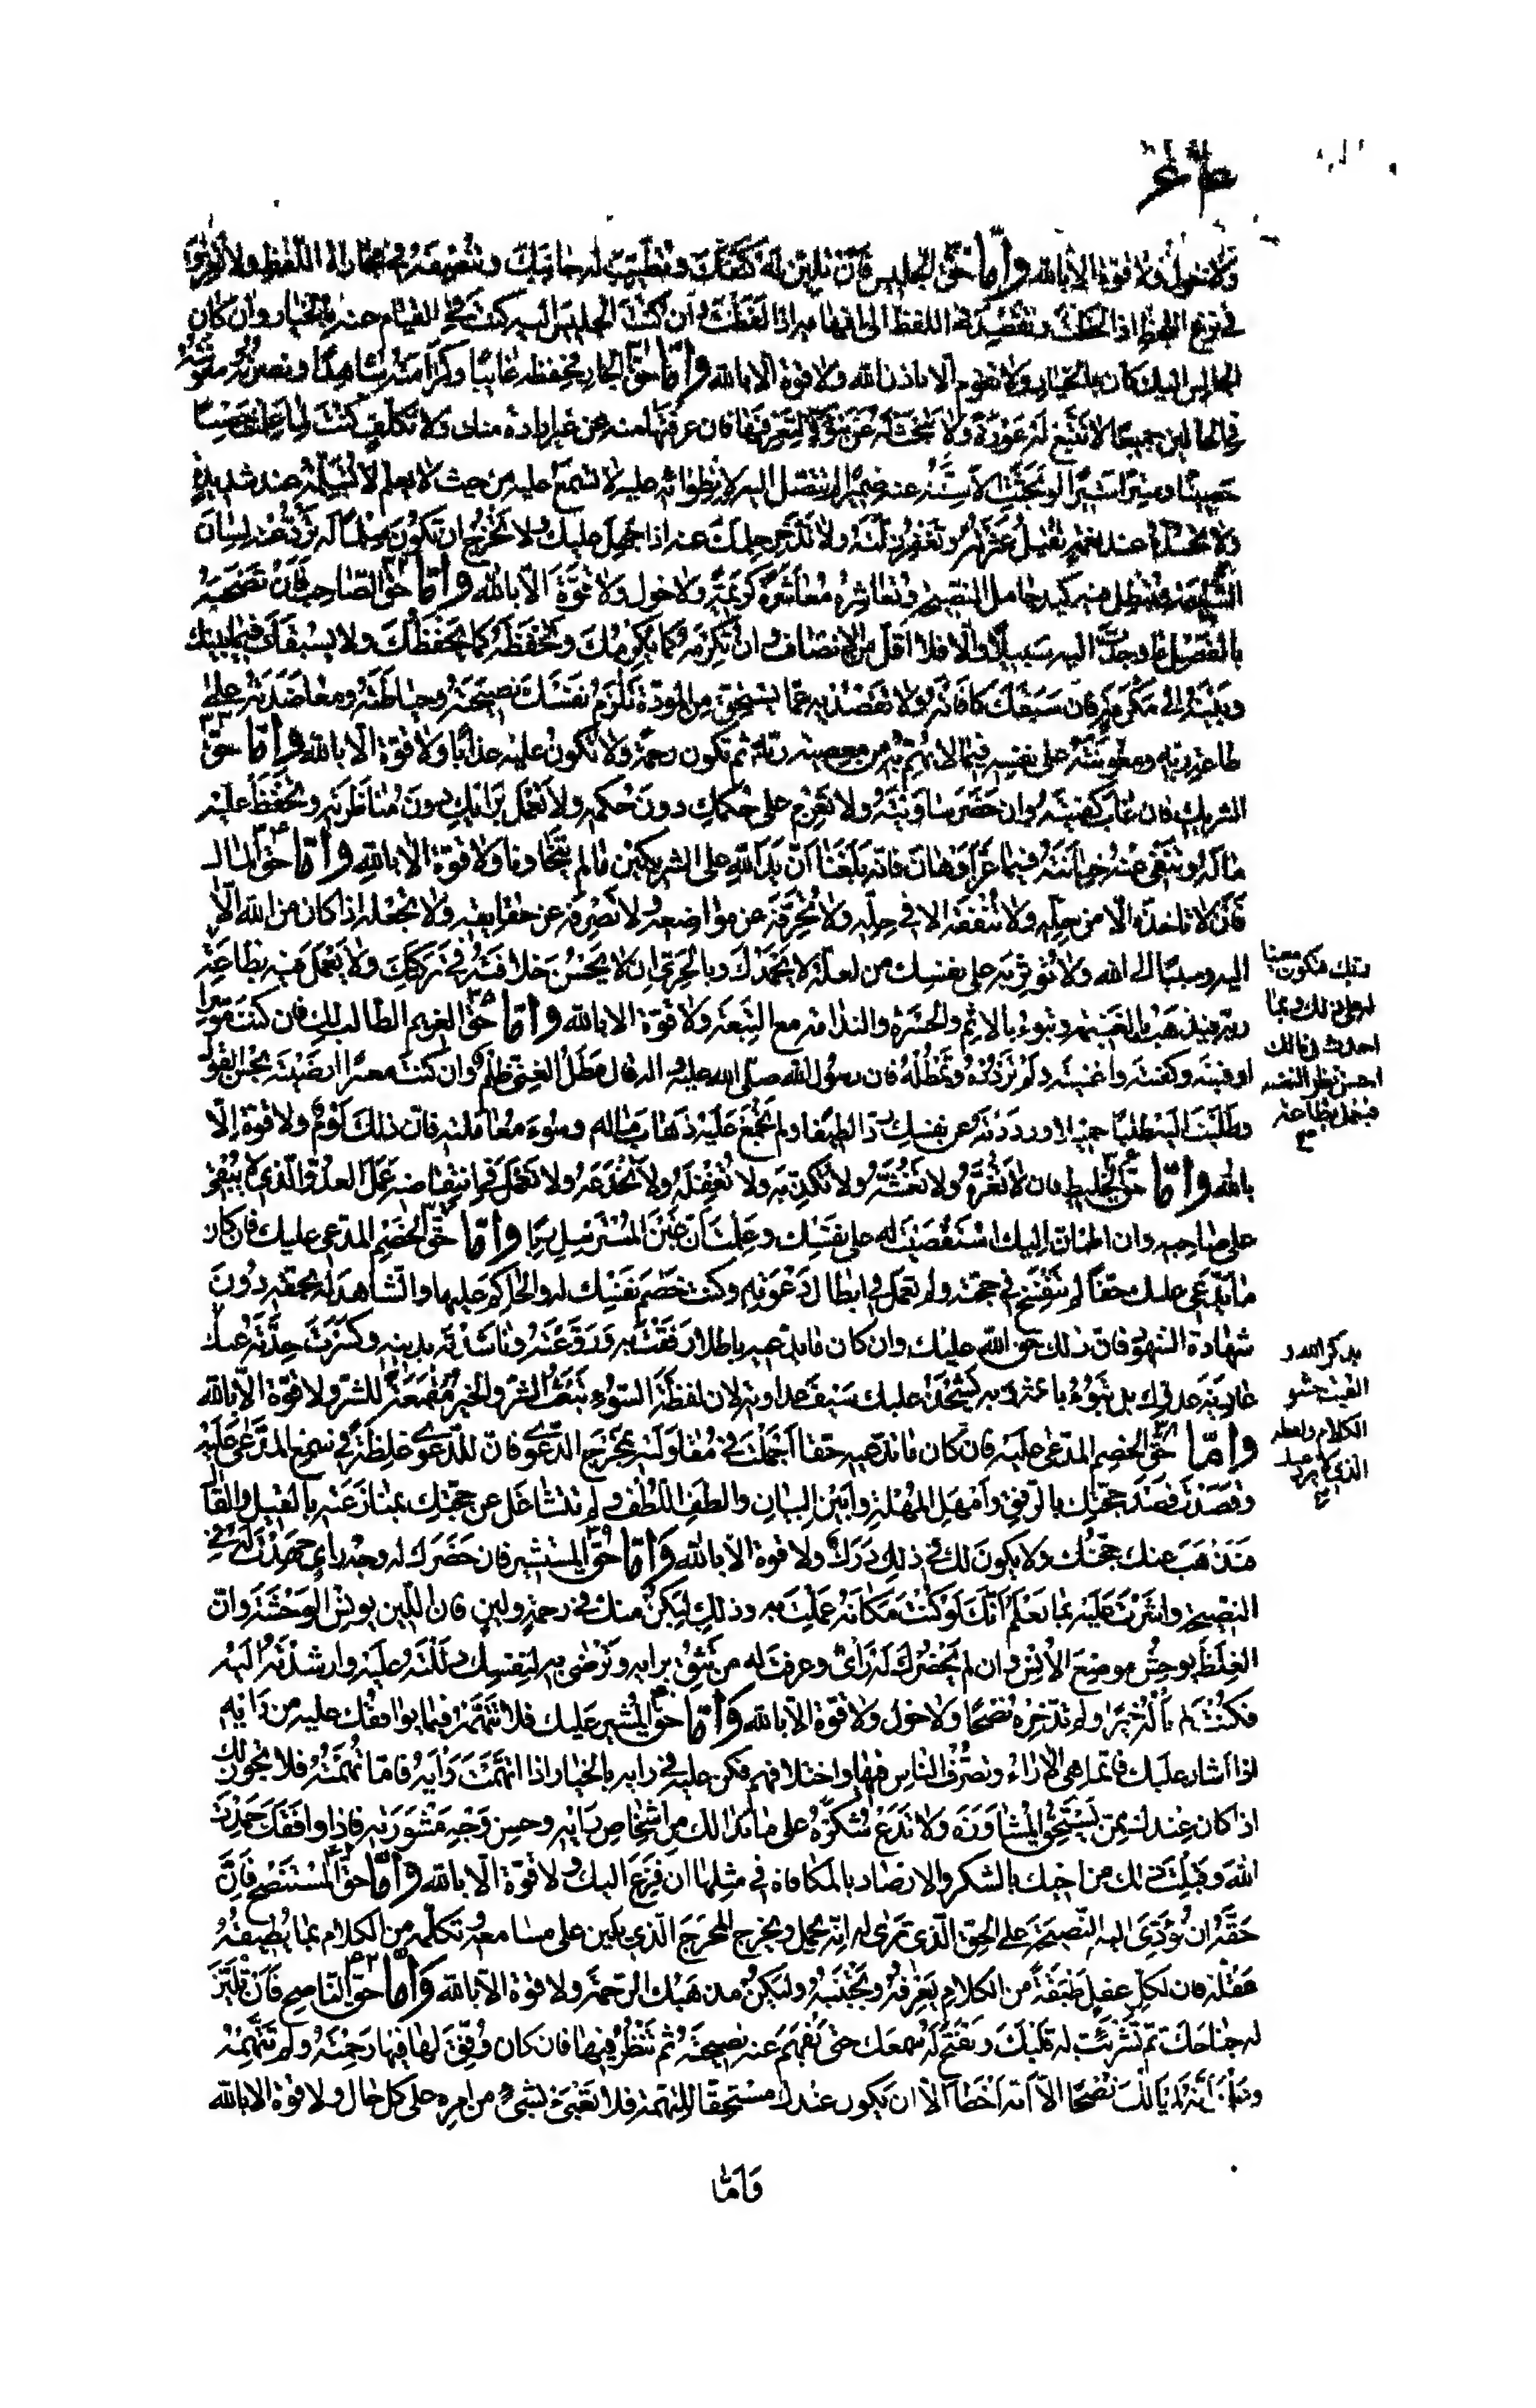 ولا حول ولا قوة الا بالله واما حق الجليس فان تلين له كنفك وتطيب له جانبك وتنصفه في مجاراة اللفظ ولا تغرق
في نزع اللحظ اذا لحظت وتقصد في اللفظ الى افهامه اذا لفظت وان كنت الجليس اليه كنت في القيام عنه بالخيار وان كان
الجالس اليك كان بالخيار ولا تقوم الا باذنه ولا قوة الا بالله واما حق الجار فحفظه غائبا وكرامته شاهدا ونصرته ومعونته
في الحالين جميعا لا تتبع له عورة ولا تبحث له عن سوءة لتعرفها فان عرفتها منه عن غير ارادة منك ولا تكلف كنت لما علمت حصنا
حصينا وسترا ستيرا لو بحثت الاسنة عنه ضميرا لم تتصل اليه لانطوائه عليه لا تسمع عليه من حيث لا يعلم لا تسلمه عند شديدة
ولا تحسده عند نعمة تقيل عثرته وتغفر زلته ولا تدخر حلمك عنه اذا جهل عليك ولا تخرج ان تكون سلما له ترد عنه لسان
الشتيمة وتبطل فيه كيد حامل النصيحة وتعاشره معاشرة كريمة ولا حول ولا قوة الا بالله واما حق الصاحب فان تصحبه
بالفضل ما وجدت اليه سبيلا والا فلا اقل من الانصاف وان تكرمه كما يكرمك وتحفظه كما يحفظك ولا يسبقك فيما بينك
وبينه الى مكرمة فان سبقك كافأته ولا تقصد به عما يستحق من المودة تلزم نفسك نصيحته وحياطته ومعاضدته على
طاعة ربه ومعونته على نفسه فيما لا يهم به من معصية ربه ثم تكون رحمة ولا تكون عليه عذابا ولا قوة الا بالله واما حق
الشريك فان غاب كفيته وان حضر ساويته ولا تعزم على حكمك دون حكمه ولا تعمل برأيك دون مناظرته وتحفظ عليه
ماله وتنفي عنه خيانته فيما عز او هان فانه بلغنا ان يد الله على الشريكين ما لم يتخاونا ولا قوة الا بالله واما حق المال
فان لا تاخذه الا من حله ولا تنفقه الا في حله ولا تحرفه عن مواضعه ولا تصرفه عن حقايقه ولا تجعله اذا كان من الله الا
اليه وسببا الى الله ولا تؤثر به على نفسك من لعله لا يحمدك وبالحري ان لا يحسن خلافته في تركتك ولا يعمل فيه بطاعة
ربك فتكون معينا
له على ذلك وبما
احدث في مالك
احسن نظرا لنفسه
فيعمل بطاعة
ربه فيذهب بالغنيمة وتبوء بالاثم والحسرة والندامة مع التبعة ولا قوة الا بالله واما حق الغريم الطالب لك فان كنت موسرا
اوفيته وكفيته واغنيته ولم تردده وتمطله فان رسول الله صلى الله عليه واله قال مطل الغني ظلم وان كنت معسرا ارضيته بحسن القول
وطلبت اليه طلبا جميلا ورددته عن نفسك ردا لطيفا ولم تجمع عليه ذهاب ماله وسوء معاملته فان ذلك لؤم ولا قوة الا
بالله واما حق الخليط فان لا تغره ولا تغشه ولا تكذبه ولا تغفله ولا تخدعه ولا تعمل في انتقاضه عمل العدو الذي لا يبقي
على صاحبه وان اطمان اليك استقصيت له على نفسك وعلمت ان غبن المسترسل ربا واما حق الخصم المدعي عليك فان كان
ما يدعي عليك حقا لم تنفسخ في حجته ولم تعمل في ابطال دعوته وكنت خصم نفسك له والحاكم عليها والشاهد له بحقه دون
شهادة الشهود فان ذلك حق الله عليك وان كان ما يدعيه باطلا رفقت به وروعته وناشدته بدينه وكسرت حدته عنك
بذكر الله و
القيت حشو
الكلام ولغطه
الذي لا يرد عنك
عادية عدوك بل تبوء باثمه وبه يشحذ عليك سيف عداوته لان لفظة السوء تبعث الشر والخير مقمعة للشر ولا قوة الا بالله
واما حق الخصم المدعى عليه فان كان ما تدعيه حقا اجملت في مقاولته بمخرج الدعوى فان للدعوى غلظة في سمع المدعى عليه
وقصدت قصد حجتك بالرفق وامهل المهلة وابين البيان والطف اللطف ولم تتشاغل عن حجتك بمنازعته بالقيل والقال
فتذهب عنك حجتك ولا يكون لك في ذلك درك ولا قوة الا بالله واما حق المستشير فان حضرك له وجه راي جهدت له في
النصيحة واشرت عليه بما تعلم انك لو كنت مكانه عملت به وذلك ليكن منك في رحمة ولين فان اللين يونس الوحشة وان
الغلظ يوحش موضع الانس وان لم يحضرك له راي وعرفت له من تثق برايه وترضى به لنفسك دللته عليه وارشدته اليه
فكنت لم تاله خيرا ولم تدخره نصحا ولا حول ولا قوة الا بالله واما حق المشير عليك فلا تتهمه فيما يوافقك عليه من رايه
اذا اشار عليك فانما هي الاراء وتصرف الناس فيها واختلافهم فكن عليه في رايه بالخيار اذا اتهمت رايه فاما تهمته فلا تجوز لك
اذا كان عندك ممن يستحق المشاورة ولا تدع شكره على ما بدا لك من اشخاص رايه وحسن وجه مشورته فاذا وافقك حمدت
الله وقبلت ذلك من اخيك بالشكر والارصاد بالمكافاة في مثلها ان فزع اليك ولا قوة الا بالله واما حق المستنصح فان
حقه ان تؤدي اليه النصيحة على الحق الذي ترى له انه يحمل ويخرج المخرج الذي يلين على مسامعه وتكلمه من الكلام بما يطيقه
عقله فان لكل عقل طبقة من الكلام يعرفه ويجتنبه وليكن مذهبك الرحمة ولا قوة الا بالله واما حق الناصح فان تلين
له جناحك ثم تشرئب له قلبك وتفتح له سمعك حتى تفهم عنه نصيحته ثم تنظر فيها فان كان وفق لها فيها رحمته ولم تتهمه
وعلمت انه لم يالك نصحا الا انه اخطا الا ان يكون عندك مستحقا للتهمة فلا تعبئ بشيء من امره على كل حال ولا قوة الا بالله
واما